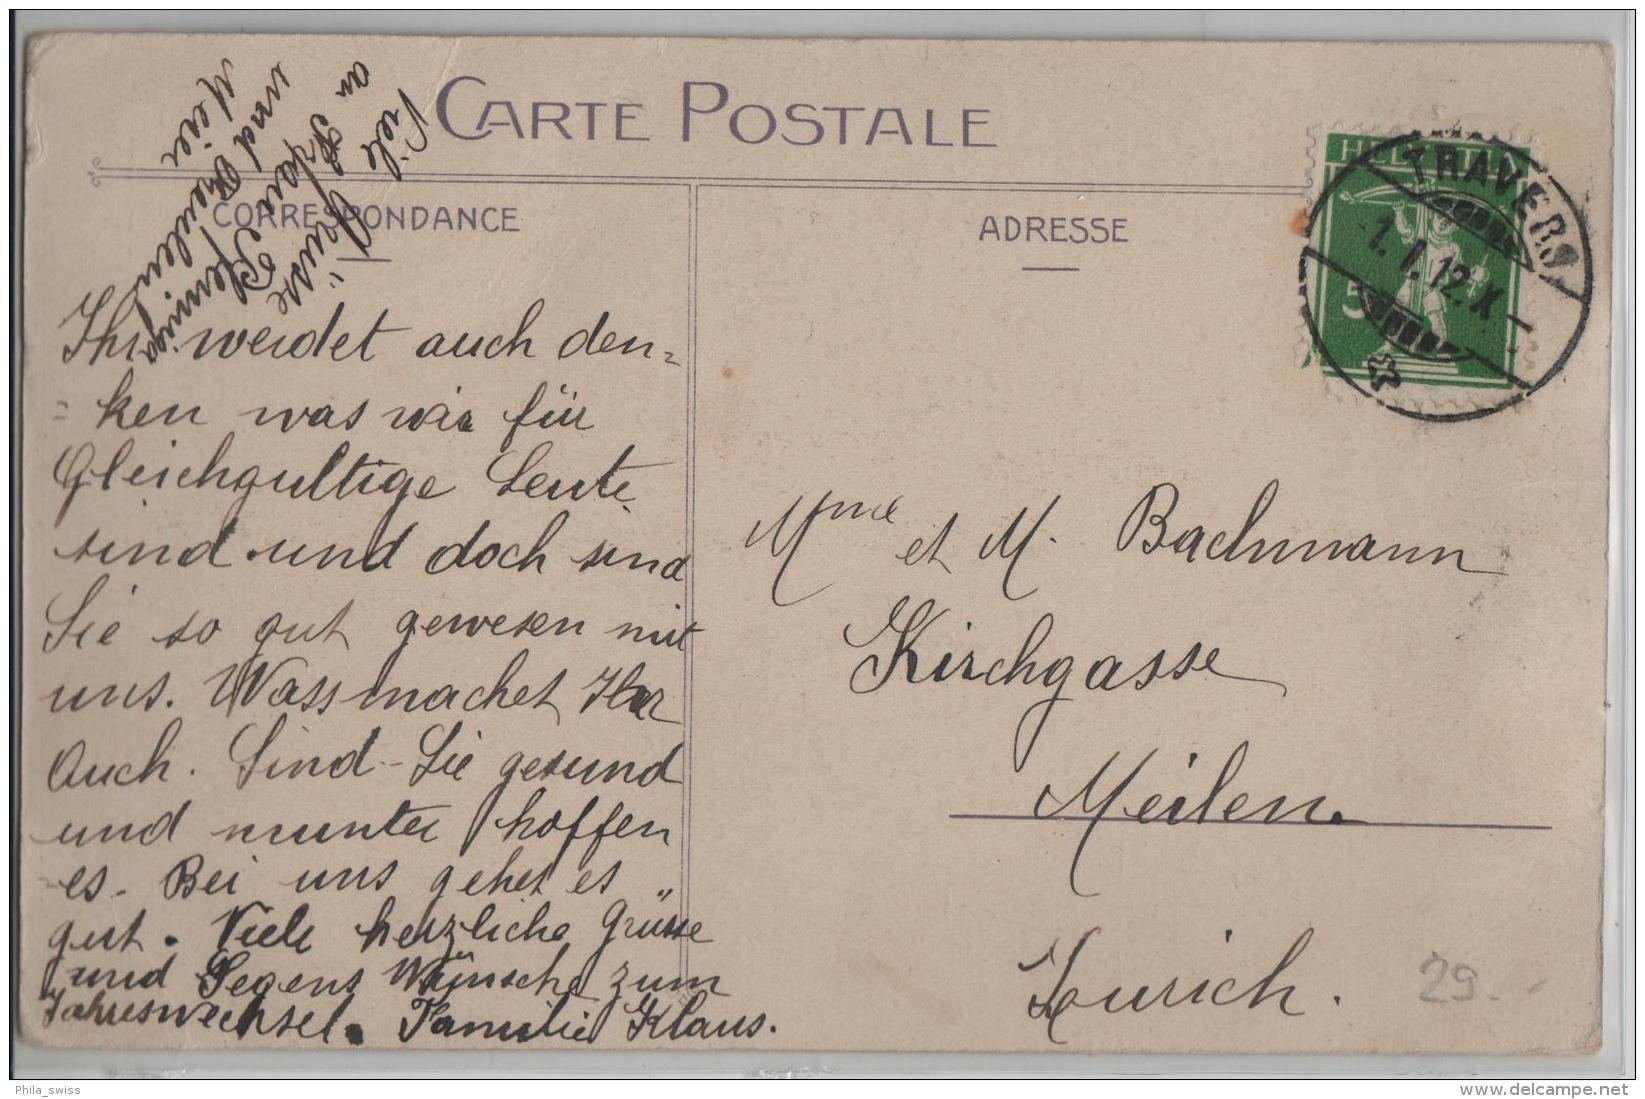 CARTE POSTALE
CORRESPONDANCE
ADRESSE
Viele Grüsse
an Frau
und Fräulein
Meier
Ihr werdet auch den=
= ken was wir für
Gleichgultige Leute
sind und doch sind
Sie so gut gewesen mit
uns. Wass machet Ihr
Auch. Sind-Sie gesund
und munter hoffen
es. Bei uns gehet es „
gut. Viele herzliche Grüsse
und Segens Wünsche zum
Jahreswechsel. Familie Klaus.
HELVETIA
5
TRAVERS
-1. I. 12. X -
Mme et M. Bachmann
Kirchgasse
Meilen.
Zurich.
29.
Phila_swiss
delcampe.net